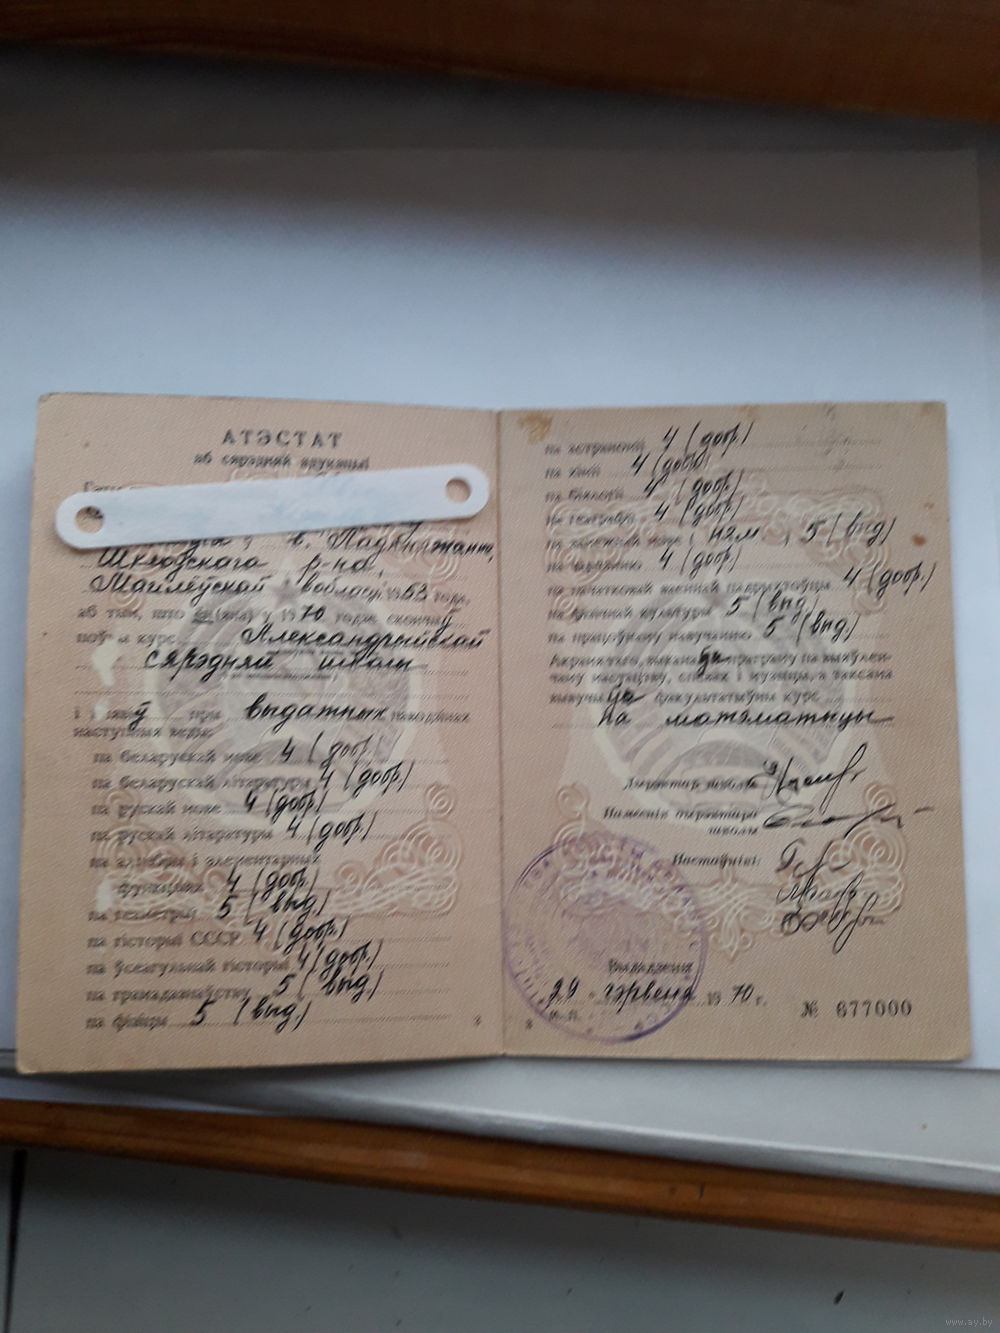 АТЭСТАТ
аб сярэдняй адукацыі
Шклоўскага р-на,
Магілёўскай вобласці 1953 года,
аб тым, што ён (яна) у 1970 годзе скончыў
поўны курс Александрыйскай
сярэдняй школы
і і пры выдатных паводзінах
наступныя веды:
па беларускай мове 4 (добр)
па беларускай літаратуры 4 (добр)
па рускай мове 4 (добр)
па рускай літаратуры 4 (добр.)
па алгебры і элементарных
функцыях 4 (добр)
па геаметрыі 5 (выд)
па гісторыі СССР 4 (добр.)
па ўсеагульнай гісторыі 4 (добр)
па грамадазнаўству 5 (выд)
па фізіцы 5 (выд.)
3
па астраноміі 4 (добр.)
па хіміі 4 (добр)
па біялогіі 4 (добр)
па геаграфіі 4 (добр)
па замежнай мове (ням.) 5 (выд)
па чарчэнню 4 (добр)
па пачатковай ваеннай падрыхтоўцы 4 (добр.)
па фізічнай культуры 5 (выд)
па працоўнаму навучанню 5 (выд)
Акрамя таго, выканаў праграму па выяўлен-
чаму мастацтву, спевах і музыцы, а таксама
вывучыў факультатыўны курс
па матэматыцы
Дырэктар школы
Намеснік дырэктара
школы
Настаўнікі:
Выдадзены
чэрвеня 1970 г.
М. П.
№ 677000
3
www.ay.by